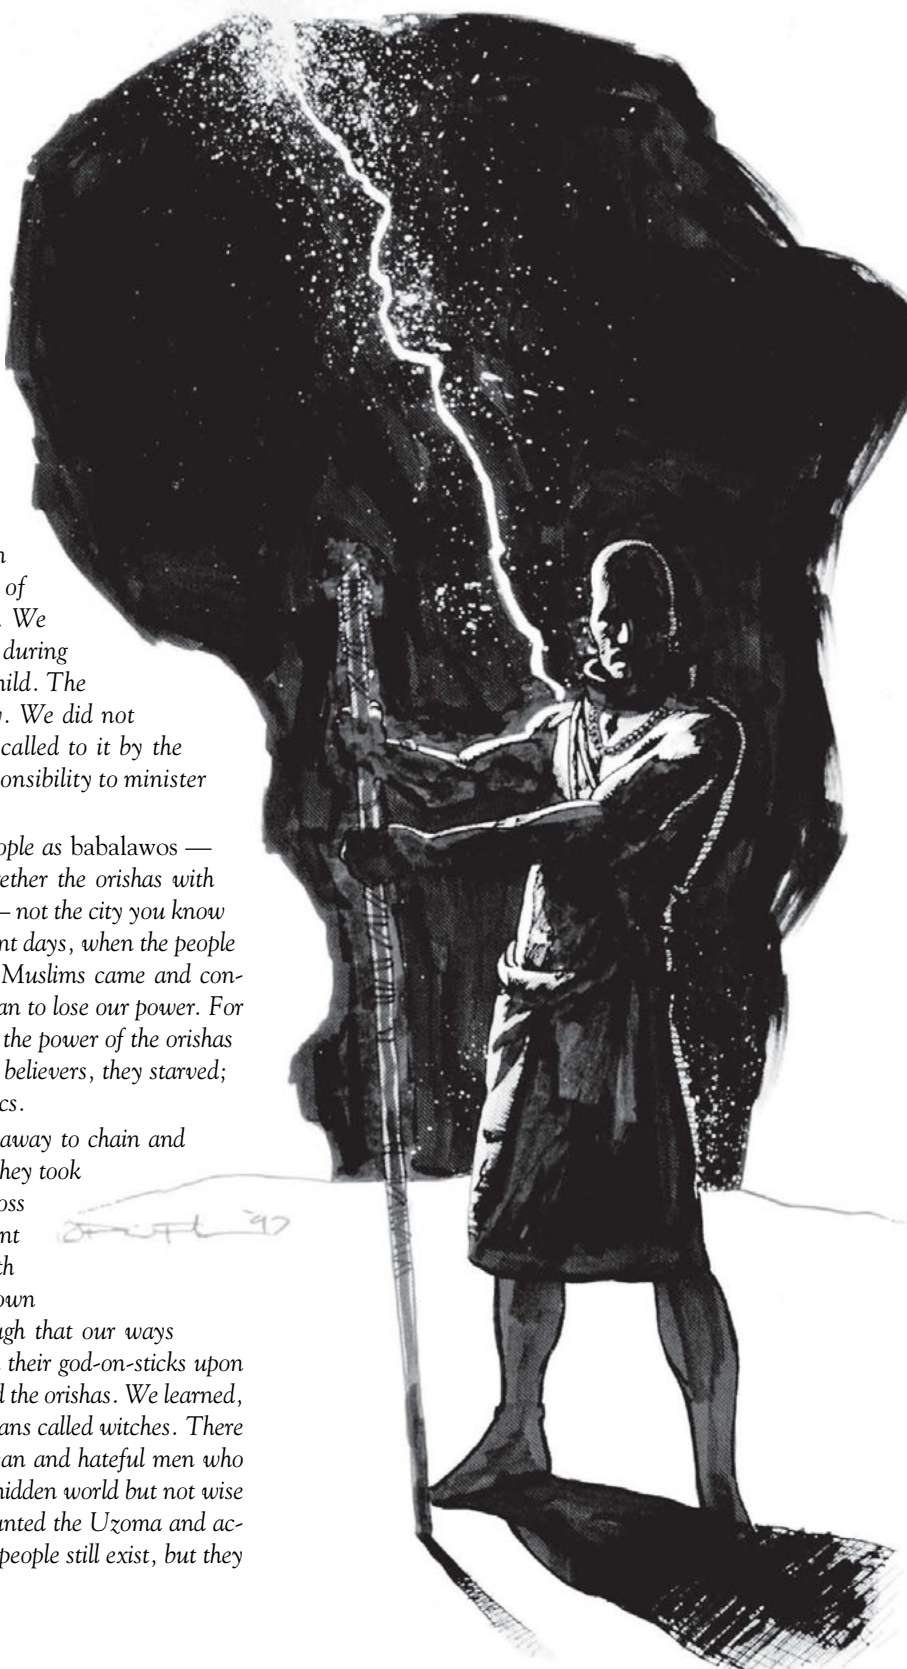 of
. We
during
hild. The
. We did not
called to it by the
onsibility to minister
ople as babalawos —
ether the orishas with
– not the city you know
nt days, when the people
Muslims came and con-
an to lose our power. For
the power of the orishas
believers, they starved;
cs.
away to chain and
hey took
oss
nt
th
own
ugh that our ways
their god-on-sticks upon
d the orishas. We learned,
ans called witches. There
an and hateful men who
hidden world but not wise
unted the Uzoma and ac-
people still exist, but they
'97